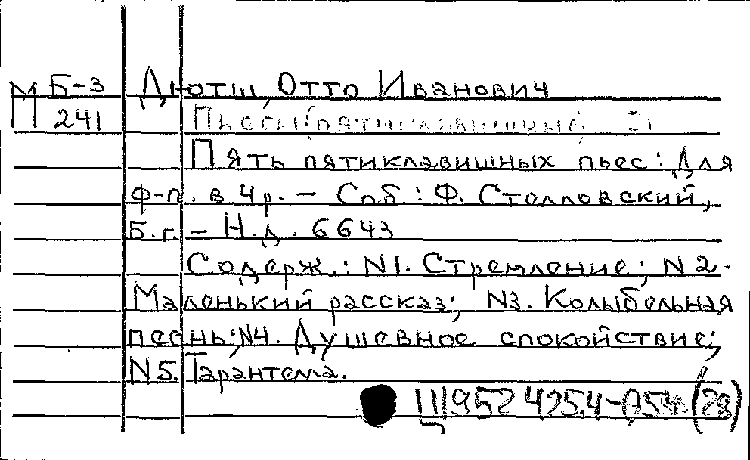 М Б-3 Дютш, Отто Иванович
241 Пьесы (пятиклавишные)
Пять пятиклавишных пьес: Для
ф-п. в 4 р. – Спб: Ф. Стелловский,
Б.г. – Н.д. 6643
Содерж.: N1. Стремление; N2.
Маленький рассказ; N3. Колыбельная
песнь; N4. Душевное спокойствие;
N5. Тарантелла.
Щ952 425.4-